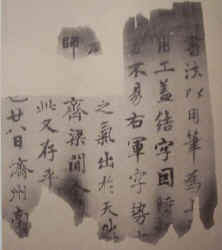 書法以用筆為上
用工蓋結字因時
不易右軍字勢
之氣出於天
師
齊梁間人
此又存乎
廿八日濟州南